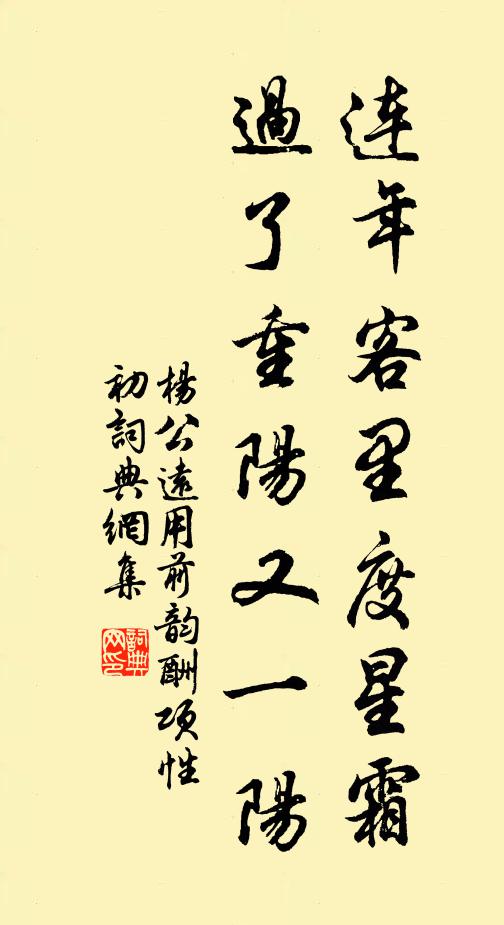 連年客里度星霜
過了重陽又一陽
楊公遠用前韵酬項性
初詞典網集
詞典
网印